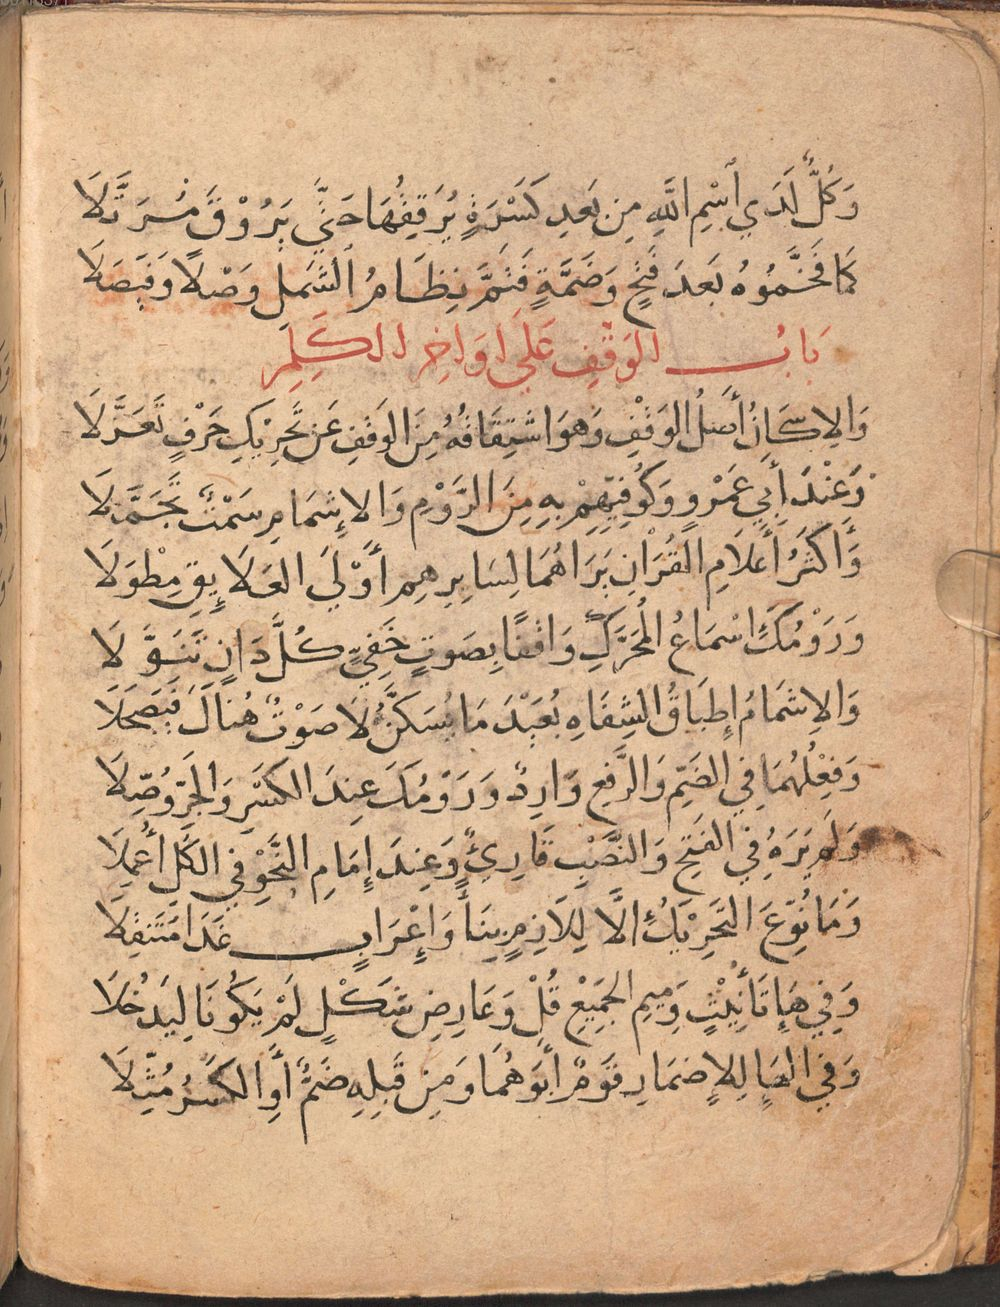 وَكُلٌّ لَدَى اسْمِ اللَّهِ مِن بَعْدِ كَسْرَةٍ يُرَقِّقُهَا حَتَّى يَرُوقَ مُرَتَّلَا
كَمَا فَخَّمُوهُ بَعْدَ فَتْحٍ وَضَمَّةٍ فَتَمَّ نِظَامُ الشَّمْلِ وَصْلًا وَفَيْصَلَا
بَابُ الوَقْفِ عَلَى أَوَاخِرِ الكَلِمِ
وَالإِسْكَانُ أَصْلُ الوَقْفِ وَهُوَ اشْتِقَاقُهُ مِنَ الوَقْفِ عَنْ تَحْرِيكِ حَرْفٍ تَعَزَّلَا
وَعِنْدَ أَبِي عَمْرٍو وَكُوفِيِّهِمْ بِهِ مِنَ الرَّوْمِ وَالإِشْمَامِ سَمْتٌ تَجَمَّلَا
وَأَكْثَرُ أَعْلَامِ القُرَانِ يَرَاهُمَا لِسَايِرِهِمْ أَوْلَى العَلَايِقِ مِطْوَلَا
وَرَوْمُكَ اسْمَاعُ المُحَرَّكِ وَاقِفًا بِصَوْتٍ خَفِيٍّ كُلَّ دَانٍ تَنَوَّلَا
وَالإِشْمَامُ إِطْبَاقُ الشِّفَاهِ بُعَيْدَ مَا يُسَكَّنُ لَا صَوْتٌ هُنَاكَ فَيَصْحَلَا
وَفِعْلُهُمَا فِي الضَّمِّ وَالرَّفْعِ وَارِدٌ وَرَوْمُكَ عِنْدَ الكَسْرِ وَالجَرِّ وُصِّلَا
وَلَمْ يَرَهُ فِي الفَتْحِ وَالنَّصْبِ قَارِئٌ وَعِنْدَ إِمَامِ النَّحْوِ فِي الكُلِّ أُعْمِلَا
وَمَا نُوِّعَ التَّحْرِيكُ إِلَّا لِلَازِمٍ بِنَاءً وَإِعْرَابٍ غَدَا مُتَنَقِّلَا
وَفِي هَاءِ تَأْنِيثٍ وَمِيمِ الجَمِيعِ قُلْ وَعَارِضِ شَكْلٍ لَمْ يَكُونَا لِيَدْخُلَا
وَفِي الهَاءِ لِلإِضْمَارِ قَوْمٌ أَبَوْهُمَا وَمِنْ قَبْلِهِ ضَمٌّ أَوِ الكَسْرُ مُثِّلَا